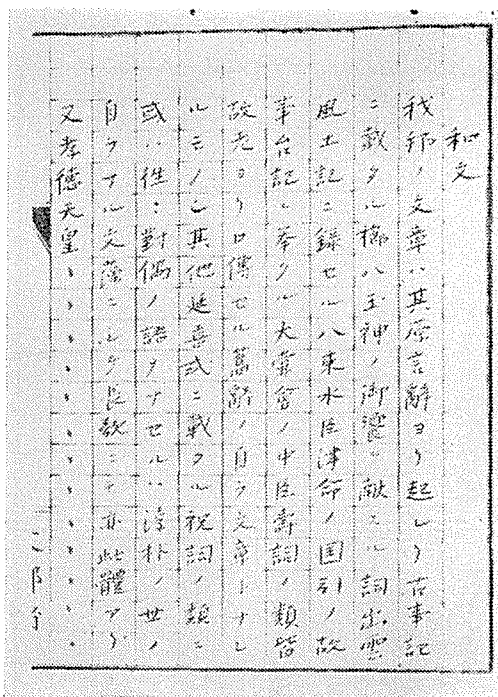 和文
我邦ノ文章ハ其原言辭ヨリ起レリ古事記
ニ載タル櫛八玉神ノ御饗ヲ献スル詞出雲
風土記ニ録セル八束水臣津命ノ国引ノ故
事台記ニ挙タル大嘗會ノ中臣壽詞ノ類皆
故老ヨリ口傳セル舊辭ノ自ラ文章トナレ
ルモノ也其他延喜式ニ載タル祝詞ノ類ニ
或ハ往々對偶ノ語ヲナセルハ淳朴ノ世ノ
自ラナル文藻ニシテ長歌ニモ亦此體アリ
又孝德天皇、、、、、、、、、、